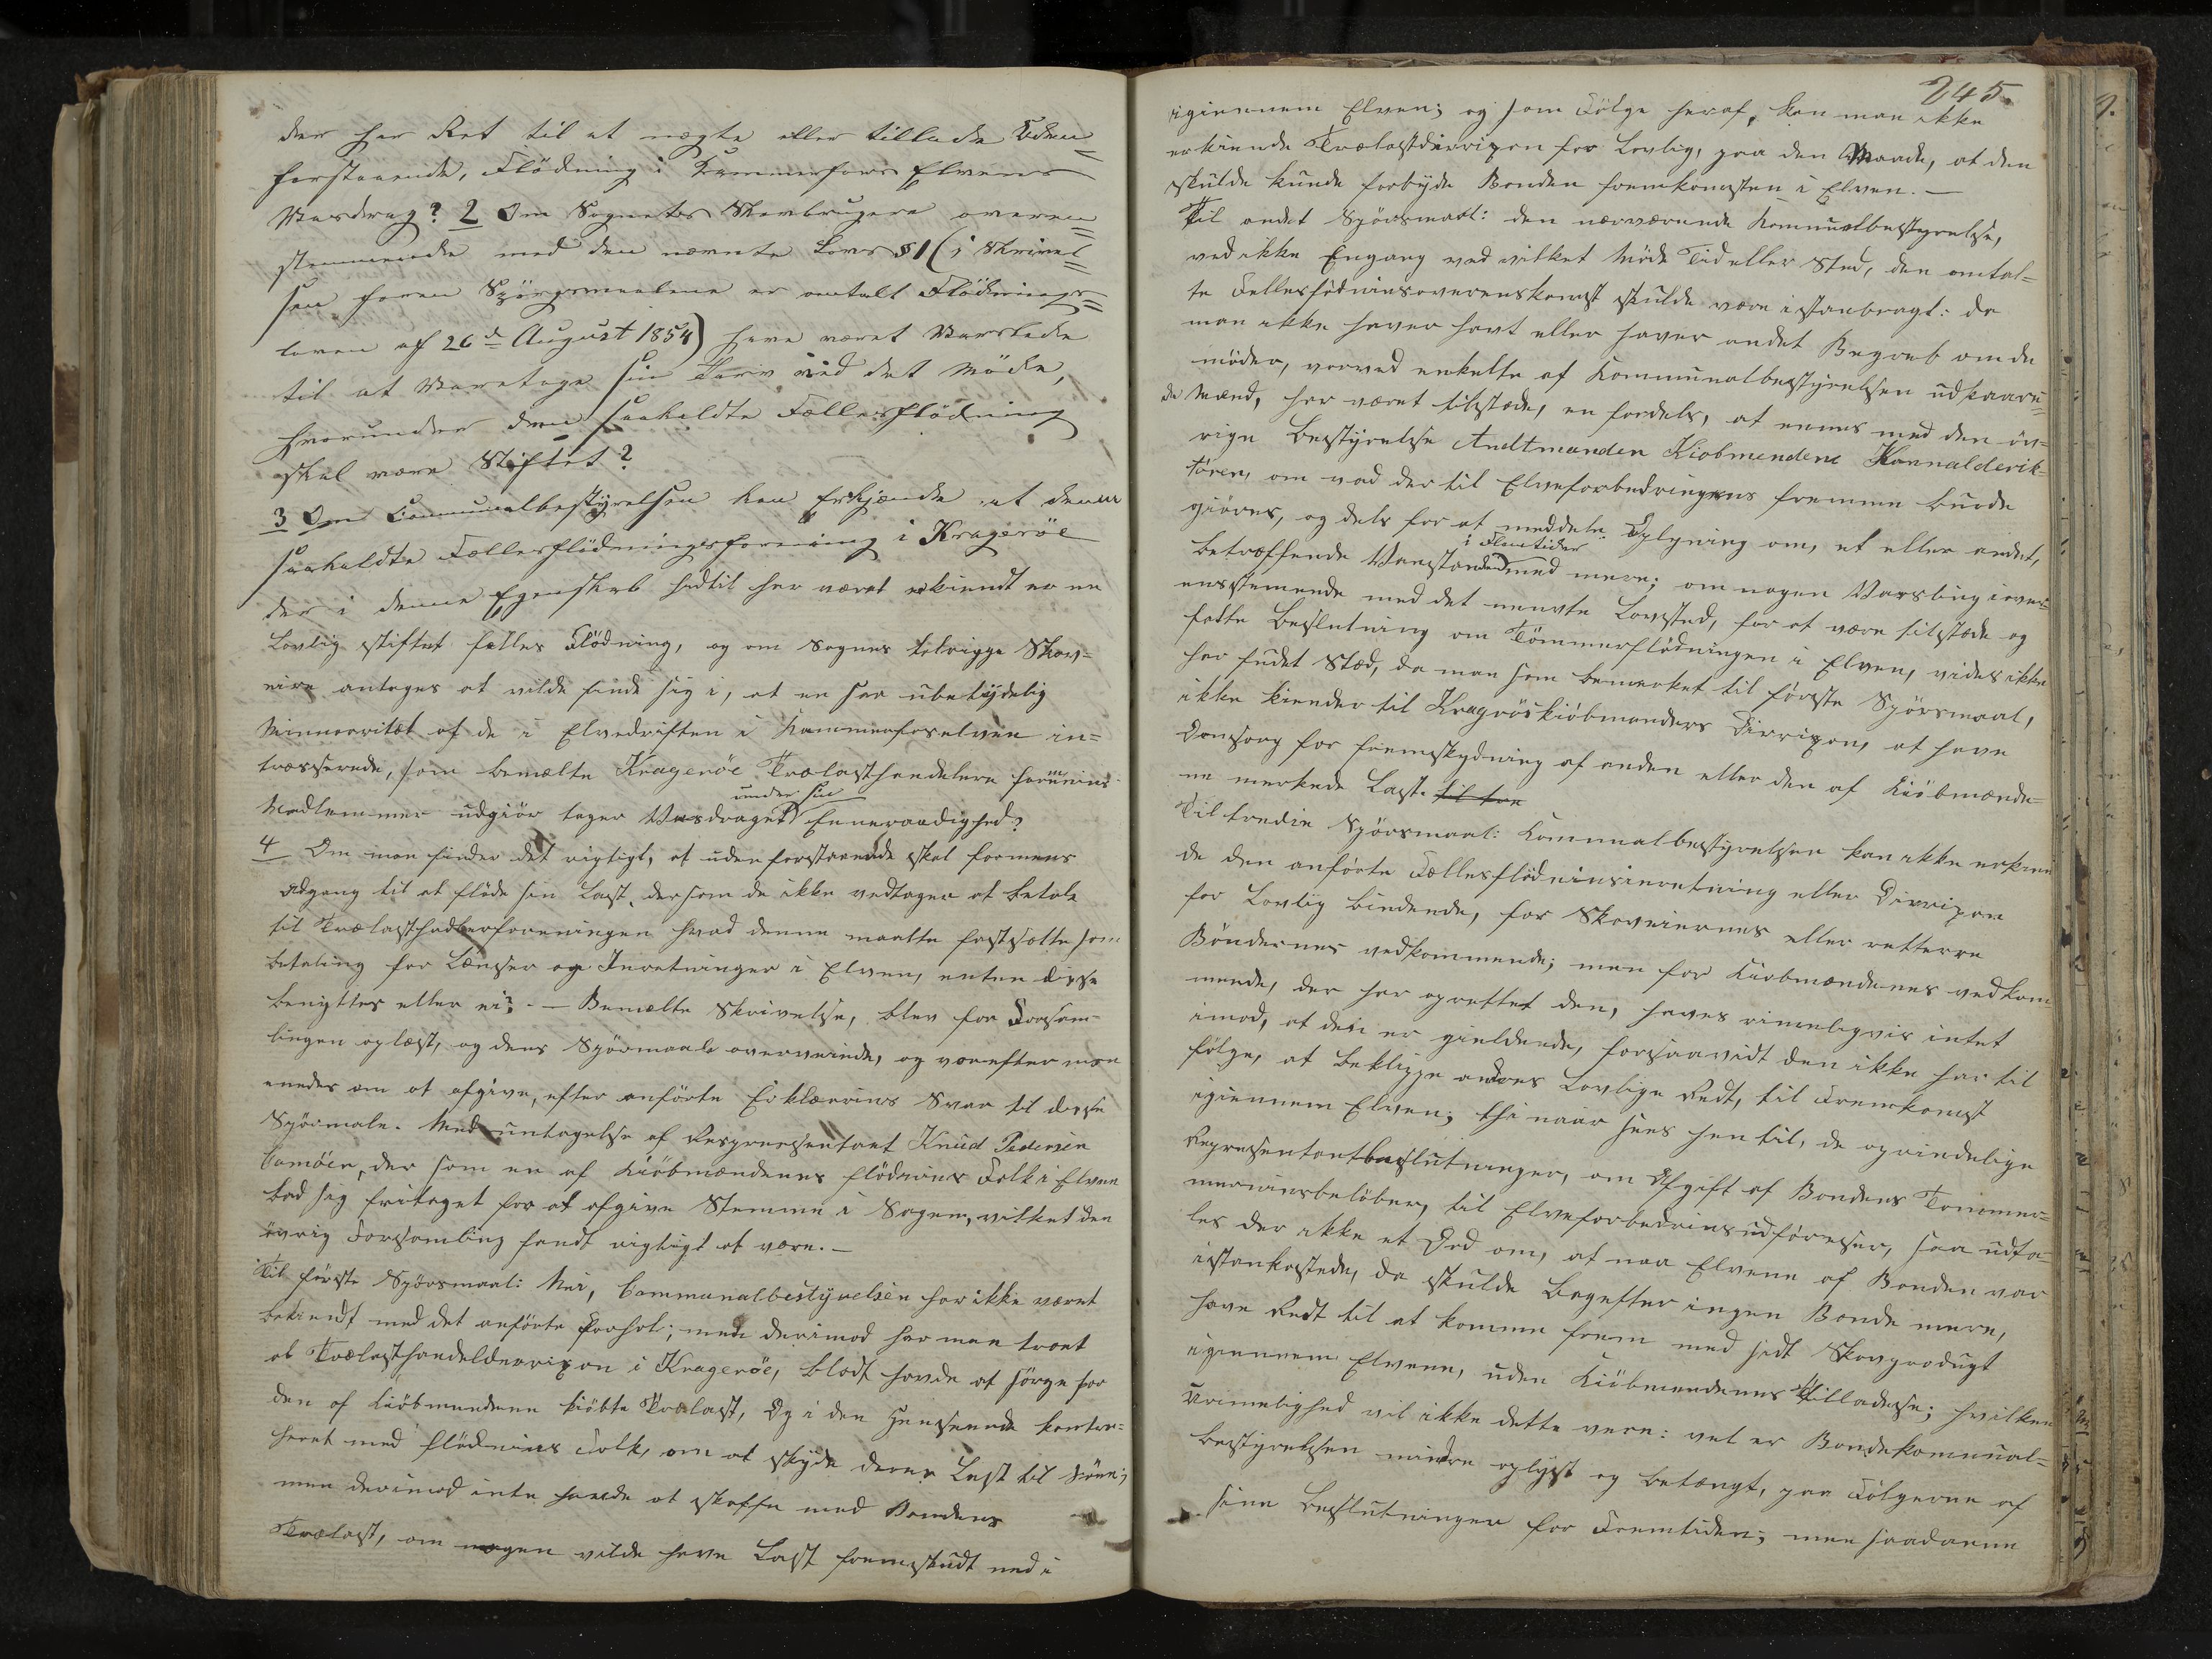 der har Ret til at nægte eller tillade Uden=
forstaaende, Flödning i Kammerfoss Elvens
Vasdrag? 2 Om Sognets Skovbrugere overen=
stemmende med den nævnte Lovs § 1 (i Skrivel=
sen foran Spörgsmaalene er omtalt Flödnings=
loven af 26de August 1854) have været Varslede
til at Varetage sin Tarv ved det Möde,
hvorunder den saakaldte Fællesflödning
skal være Stiftet?
3 Om Communalbestyrelsen kan Erkjende at denne
saakaldte Fællesflödningsforening i Krageröe
der i denne Egenskab hidtil har været erkiendt er en
Lovlig stiftet fælles Flödning, og om Sognes tilrigge Skov=
eire antages at vilde finde sig i, at en saa ubetydelig
Minnoritæt af de i Elvedriften i Kammerfoselven in=
træsserede, som bemælte Krageröe Trælasthandelere forenins
under sin
Medlemmer udgiör tager Vasdraget Enneraadighed?
4 Om man finder det rigtigt, at udenforstaaende skal formens
Adgang til at flöde sin Last, dersom de ikke vedtager at betale
til Trælasthandlerforeningen hvad denne maatte fastsætte som
betaling for Lænser og Inretninger i Elven, enten disse
benyttes eller ei? - Bemælte Skrivelse, blev for Forsam=
lingen oplæst, og dens Spörsmaal overveiede, og vorefter man
enedes om at afgive, efter anförte Erklærins Svar til disse
Spörsmale. Med untagelse af Respresentant Knud Pedersen
Camöen, der som en af Kiöbmændenes flödnins Folk i Elven
bad sig fritaget for at afgive Stemme i Sagen, vilket den
övrig Forsamling fandt rigtigt at være. -
Til förste Spörsmaal: Nei, Communalbestyrelsen har ikke været
bekiendt med det anförte Forhol; men derimod har man troet
at Trælasthandeldirrixon i Krageröe, blodt havde at sörge for
den af Kiöbmendene kiöbte Trælast, Og i den Henseende kontra=
heret med flödnins Folk, om at skyde deres Last til Söen;
men derimod inte havde at skaffe med Bondens
Trælast, om nogen vilde have Last fremskudt ned i
245.
igiennem Elven; og som Fölge heraf, kan man ikke
erkiende Trælastdirrixon for Lovlig, paa den Maade, at den
skulde kunde forbyde Bonden fremkomsten i Elven. -
Til andet Spörsmaal: den nærværende Komunalbestyrelse,
ved ikke Engang ved vilket Möde Tid eller Sted, den omtal=
te Fellesflödninsoverenskomst skulde være istanbragt: da
man ikke haver havt eller haver andet Begreb om de
möder, vorved enkelte af Kommunalbestyrelsen udkaare=
de Mænd, har været tilstede, en fordels, at enes med den öv=
rige Bestyrelse Amtmanden Kiobmendene Kannalderik=
tören, om vad der til Elveforbedringens fremme burde
giöres, og dels for at meddele Oplysning om, et eller andet,
i Flomtider
betræffende Vanstanden med mere; om nogen Varsling iover=
ensstemende med det nevnte Lovsted, for at være tilstede og
fatte Beslutning om Tömmerflödningen i Elven, vides ikke
har fundet Sted, da man som bemerket til förste Spörsmaal,
ikke kiender til Kragröskiöbmanders Dirrixon, at have
Omsorg for fremskydning af anden eller den af Kiöbmænde=
ne merkede Last. til tre
Til tredie Spörsmaal: Komunalbestyrelsen kan ikke erkien
de den anförte Fællesflödninsinretning eller Dirrixon
for Lovlig bindende, for Skoveiernes eller rettere
Böndernes vedkommende; men for Kiobmændenes vedkom=
mende, der har oprettet den, haves rimeligvis intet
imod, at den er gieldende, forsaavidt den ikke har til
fölge, at beklippe andres Lovlige Redt, til Fremkomst
igiennem Elven; thi naar sees hen til, de oprindelige
Represententbeslutninger, om Afgift af Bondens Tommer=
merinsbelöber, til Elveforbedrinsudförelser, saa udta=
les der ikke et Ord om, at naa Elvene af Bonden var
istankostede, da skulde bagefter ingen Bonde mere,
have Redt til at komme frem med sidt Skovprodugt
igiennem Elvene, uden Kiöbmendenes Tilladelse; hvilken
Urimelighed vil ikke dette være: vel er Bondekomunal=
bestyrelsen mindre oplyst og betænkt, paa Fölgerne af
sine Beslutninger for Fremtiden; men saadanne